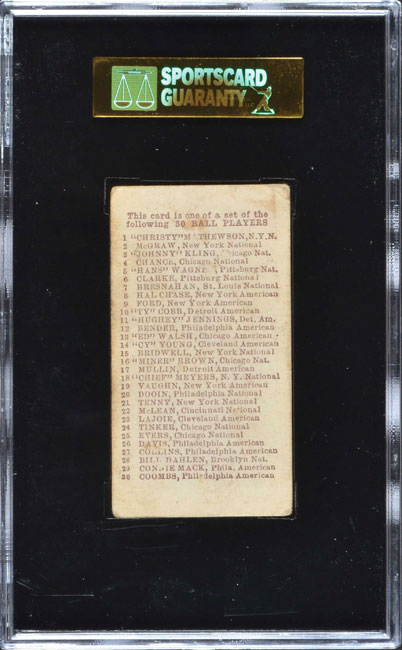 SPORTSCARD
GUARANTY
This card is one of a set of the
following 30 BALL PLAYERS
1 "CHRISTY" M THEWSON, N.Y.N.
2 McGRAW, New York National
3 "JOHNNY" KLING, Chicago Nat.
4 CHANCE, Chicago National
5 "HANS" WAGNE , Pittsburg Nat.
6 CLARKE, Pittsburg National
7 BRESNAHAN, St. Louis National
8 HAL CHASE, New York American
9 FORD, New York American
10 "TY" COBB, Detroit American
11 "HUGHEY" JENNINGS, Det. Am.
12 BENDER, Philadelphia American
13 "ED" WALSH, Chicago American
14 "CY" YOUNG, Cleveland American
15 BRIDWELL, New York National
16 "MINER" BROWN, Chicago Nat.
17 MULLIN, Detroit American
18 "CHIEF" MEYERS, N. Y. National
19 VAUGHN, New York American
20 DOOIN, Philadelphia National
21 TENNY, New York National
22 McLEAN, Cincinnati National
23 LAJOIE, Cleveland American
24 TINKER, Chicago National
25 EVERS, Chicago National
26 DAVIS, Philadelphia American
27 COLLINS, Philadelphia American
28 BILL DAHLEN, Brooklyn Nat.
29 CONNIE MACK, Phila. American
30 COOMBS, Philadelphia American